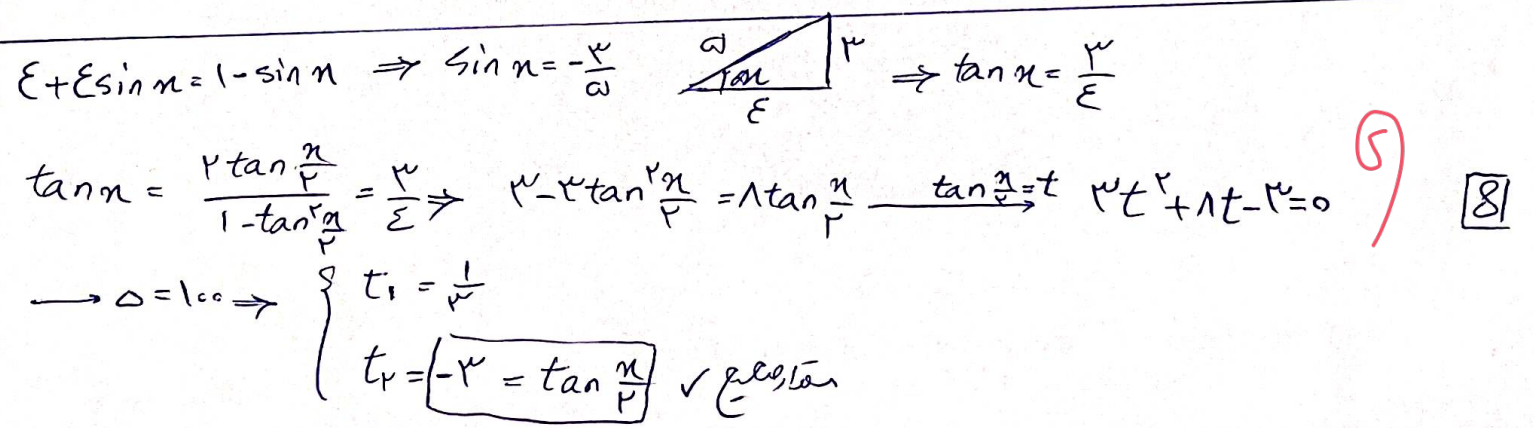 ۴+۴sin x = ۱-sin x ⇒ sin x = -۳/۵ ۵ ۳ ۴ ⇒ tan x = ۳/۴
tan x = (۲tan x/۲)/(۱-tan^۲ x/۲) = ۳/۴ ⇒ ۳-۳tan^۲ x/۲ = ۸tan x/۲ → tan x/۲ = t ۳t^۲+۸t-۳=۰ 8
→ Δ=۱۰۰ ⇒ { t₁ = ۱/۳
t₂ = -۳ = tan x/۲ ✓